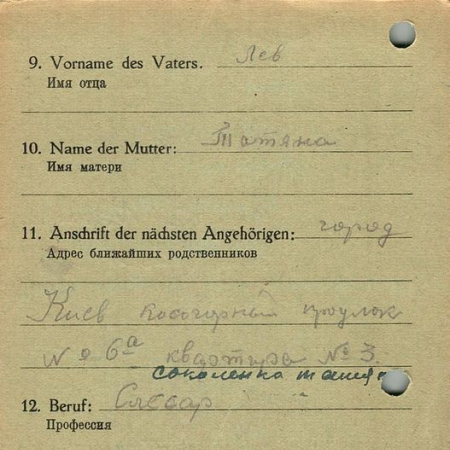 9. Vorname des Vaters. Лев
Имя отца
10. Name der Mutter: Татяна
Имя матери
11. Anschrift der nächsten Angehörigen: город
Адрес ближайших родственников
Киев косогорный проулок
№ 6а квартира № 3.
соколенка
12. Beruf: Слесар
Профессия